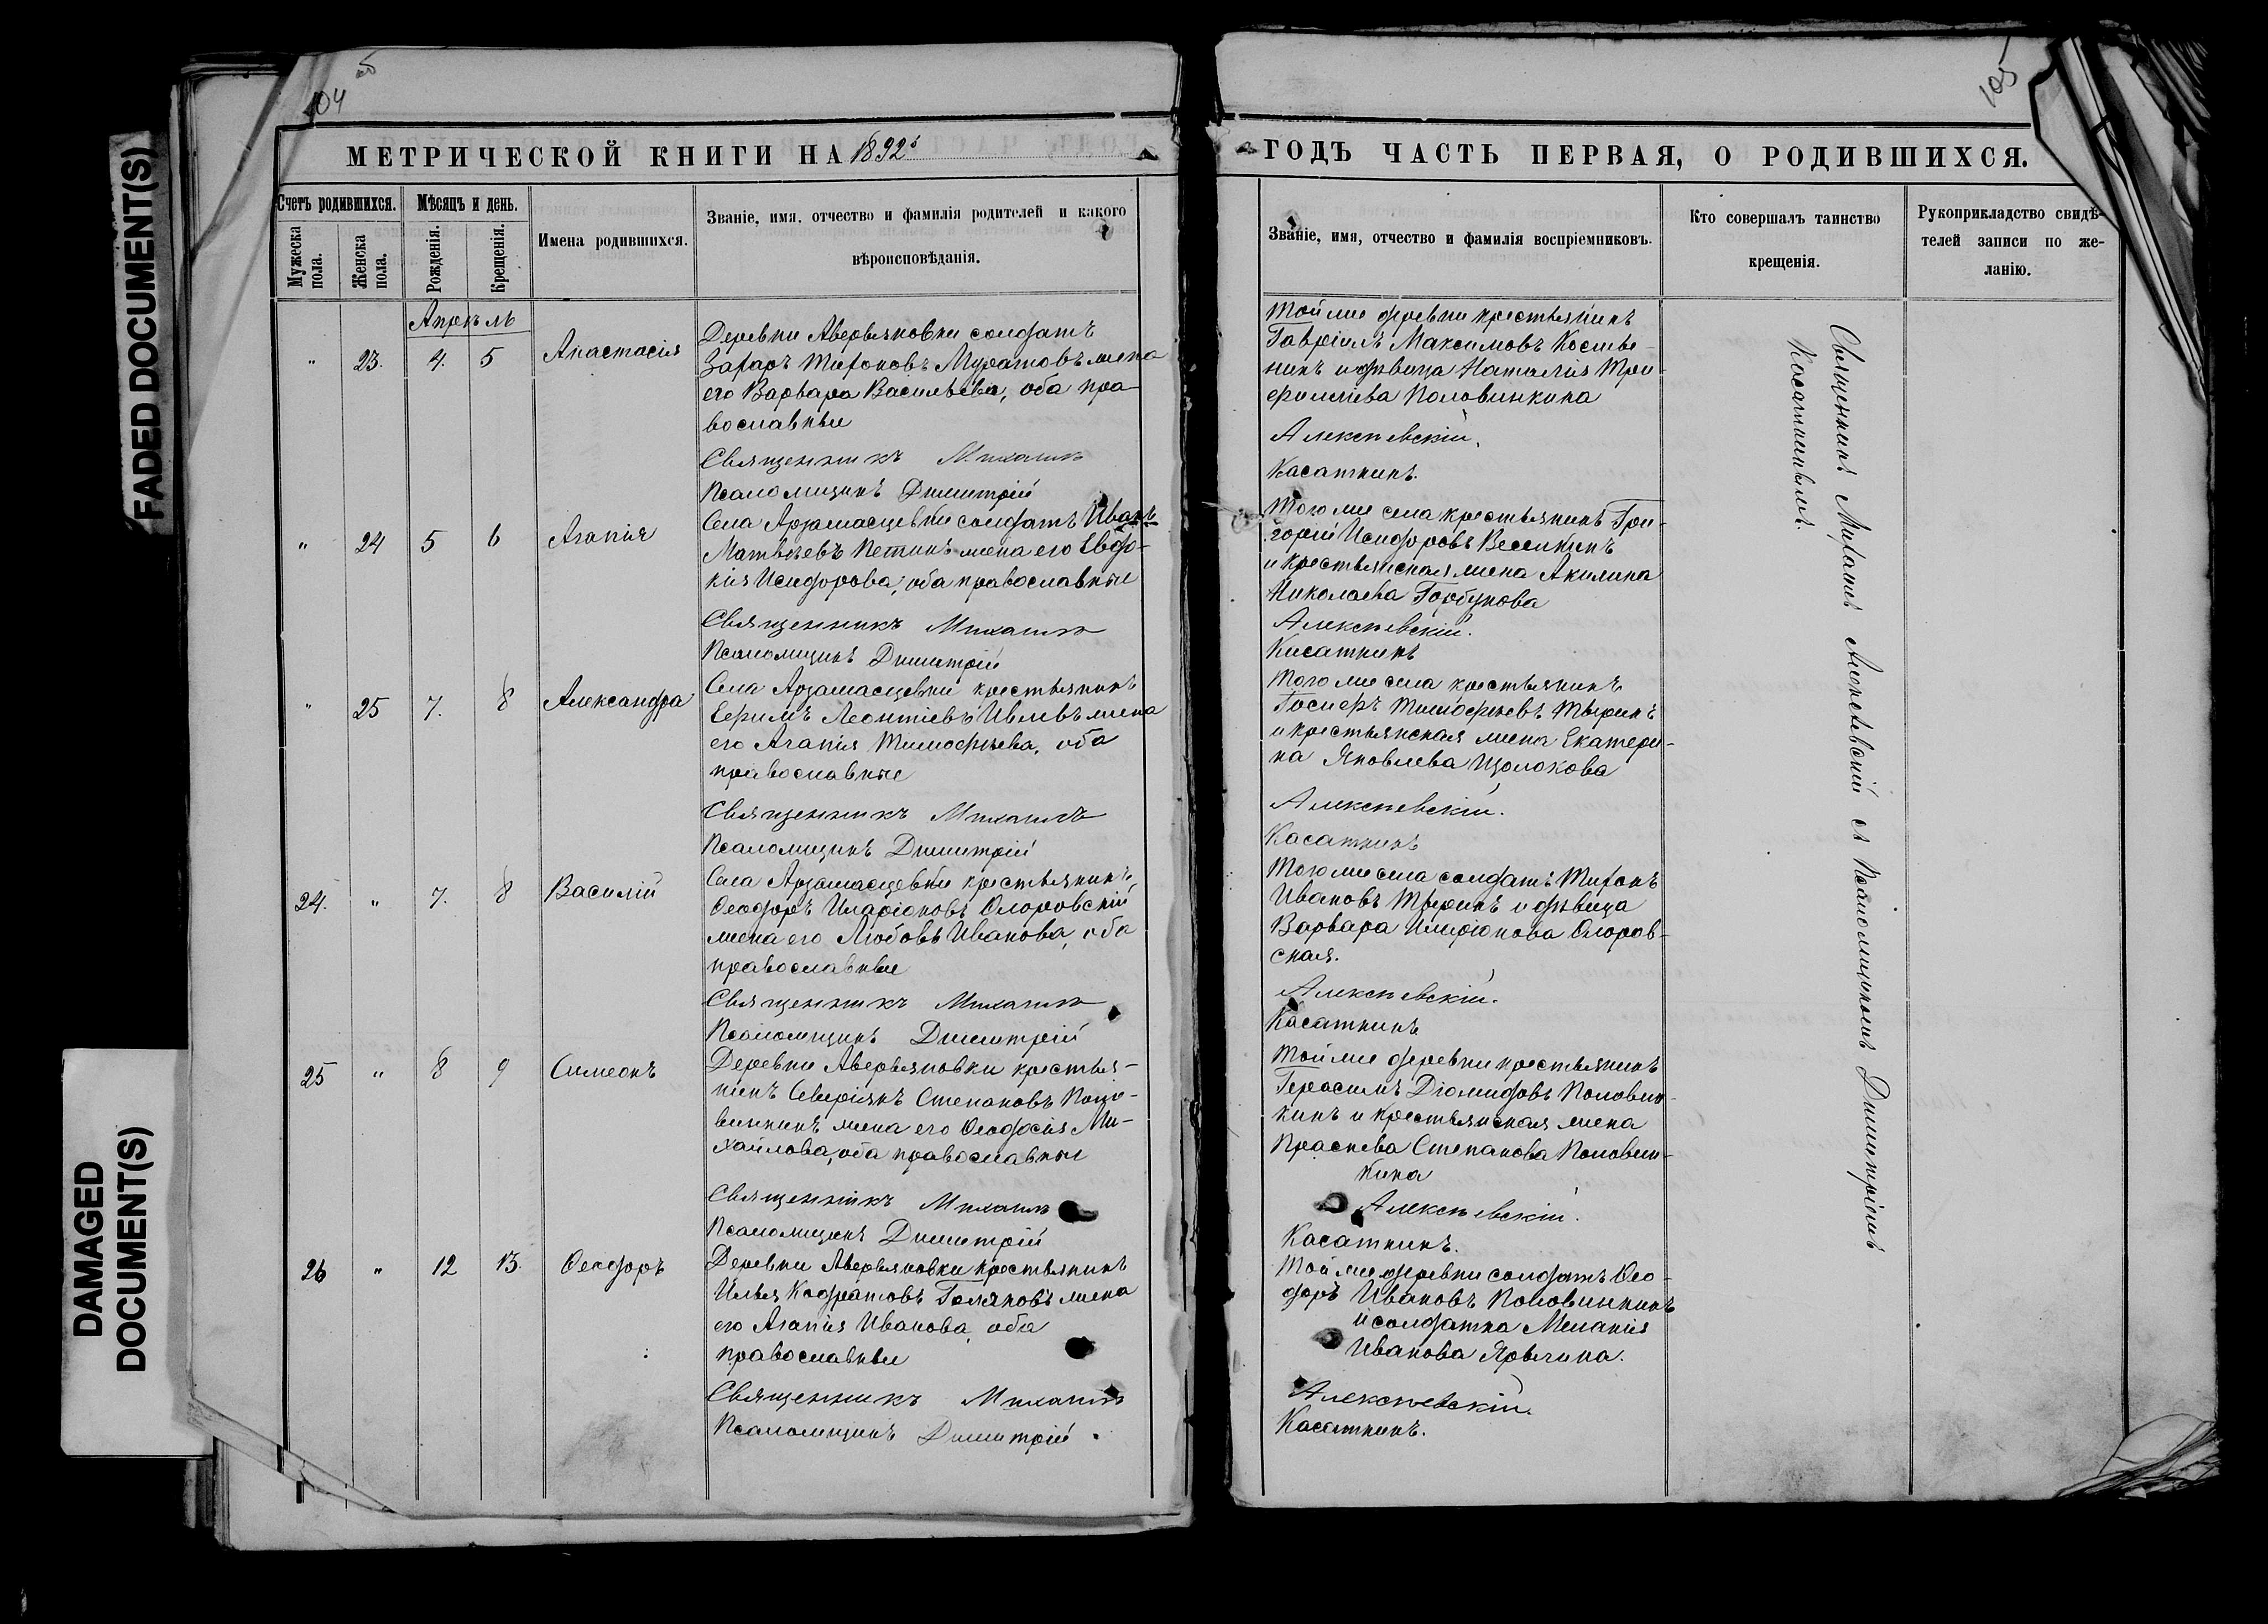 FADED DOCUMENT(S)
DAMAGED
DOCUMENT(S)
104
105
МЕТРИЧЕСКОЙ КНИГИ НА 1892
ГОДЪ ЧАСТЬ ПЕРВАЯ, О РОДИВШИХСЯ.
Счетъ родившихся.
Мужеска пола.
Женска пола.
Мѣсяцъ и день.
Рожденія.
Крещенія.
Имена родившихся.
Званіе, имя, отчество и фамилія родителей и какого
вѣроисповѣданія.
Званіе, имя, отчество и фамилія воспріемниковъ.
Кто совершалъ таинство
крещенія.
Рукоприкладство свидѣ-
телей записи по же-
ланію.
Апрѣль
" 23. 4. 5 Анастасія
Деревни Аверьяновки солдатъ
Захаръ Тихоновъ Муратовъ жена
его Варвара Васильева, оба пра-
вославные
Священникъ Михаилъ
Псаломщикъ Димитрій
Той же деревни крестьянинъ
Гавріилъ Максимовъ
и дѣвица Наталія Три-
филіева Половинкина
Алексѣевскій.
Касаткинъ.
" 24 5 6 Агапія
Села Арзамасцевки солдатъ Иванъ
Матвѣевъ Петинъ жена его Евдо-
кія Исидорова, оба православные
Священникъ Михаилъ
Псаломщикъ Димитрій
Того же села крестьянинъ Гри-
горій Исидоровъ
и крестьянская жена Акилина
Николаева Горбунова
Алексѣевскій.
Касаткинъ
" 25 7. 8 Александра
Села Арзамасцевки крестьянинъ
Ефимъ Леонтіевъ Ивлевъ жена
его Агапія Тимофѣева, оба
православные
Священникъ Михаилъ
Псаломщикъ Димитрій
Того же села крестьянинъ
Тимофѣевъ
и крестьянская жена Екатери-
на Яковлева Щолокова
Алексѣевскій.
Касаткинъ
24. " 7. 8 Василій
Села Арзамасцевки крестьянинъ
Ѳеодоръ Иларіоновъ
жена его Любовь Иванова, оба
православные
Священникъ Михаилъ
Псаломщикъ Димитрій
Того же села солдатъ Тихонъ
Ивановъ и дѣвица
Варвара Иларіонова
ская.
Алексѣевскій.
Касаткинъ
25 " 8 9 Симеонъ
Деревни Аверьяновки крестья-
нинъ Северіянъ Степановъ Поло-
винкинъ жена его Ѳеодосія Ми-
хайлова, оба православные
Священникъ Михаилъ
Псаломщикъ Димитрій
Той же деревни крестьянинъ
Герасимъ Діомидовъ Половин-
кинъ и крестьянская жена
Праскева Степанова Половин-
кина
Алексѣевскій.
Касаткинъ.
26 " 12 13. Ѳеодоръ
Деревни Аверьяновки крестьянинъ
Илья Кодратовъ Голяковъ жена
его Агапія Иванова, оба
православные
Священникъ Михаилъ
Псаломщикъ Димитрій.
Той же деревни солдатъ Ѳео-
доръ Ивановъ Половинкинъ
и солдатка Меланія
Иванова
Алексѣевскій.
Касаткинъ.
Священникъ Михаилъ Алексѣевскій съ Псаломщикомъ Димитріемъ
Касаткинымъ.